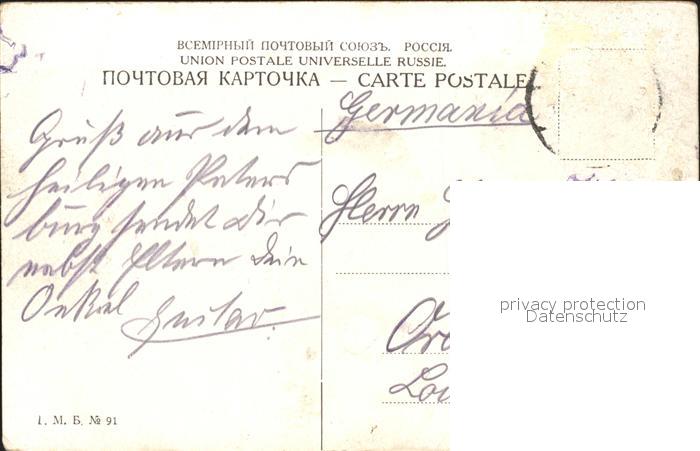 ВСЕМІРНЫЙ ПОЧТОВЫЙ СОЮЗЪ. РОССІЯ.
UNION POSTALE UNIVERSELLE RUSSIE.
ПОЧТОВАЯ КАРТОЧКА — CARTE POSTALE
Germania
Gruß aus dem
heiligen Peters
burg sendet Dir
nebst Eltern Dein
Onkel Gustav.
Herrn
privacy protection
Datenschutz
І. М. Б. № 91